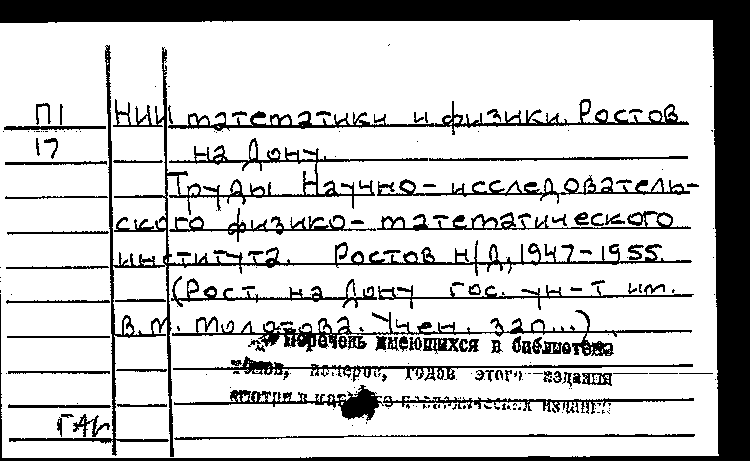 П1 НИИ математики и физики. Ростов
17 на Дону.
Труды Научно-исследователь-
ского физико-математического
института. Ростов н/Д, 1947-1955.
(Рост. на Дону гос. ун-т им.
В.М. Молотова. Учен. зап...)
Перечень имеющихся в библиотеке
томов, номеров, годов этого издания
смотри в
ГАИ